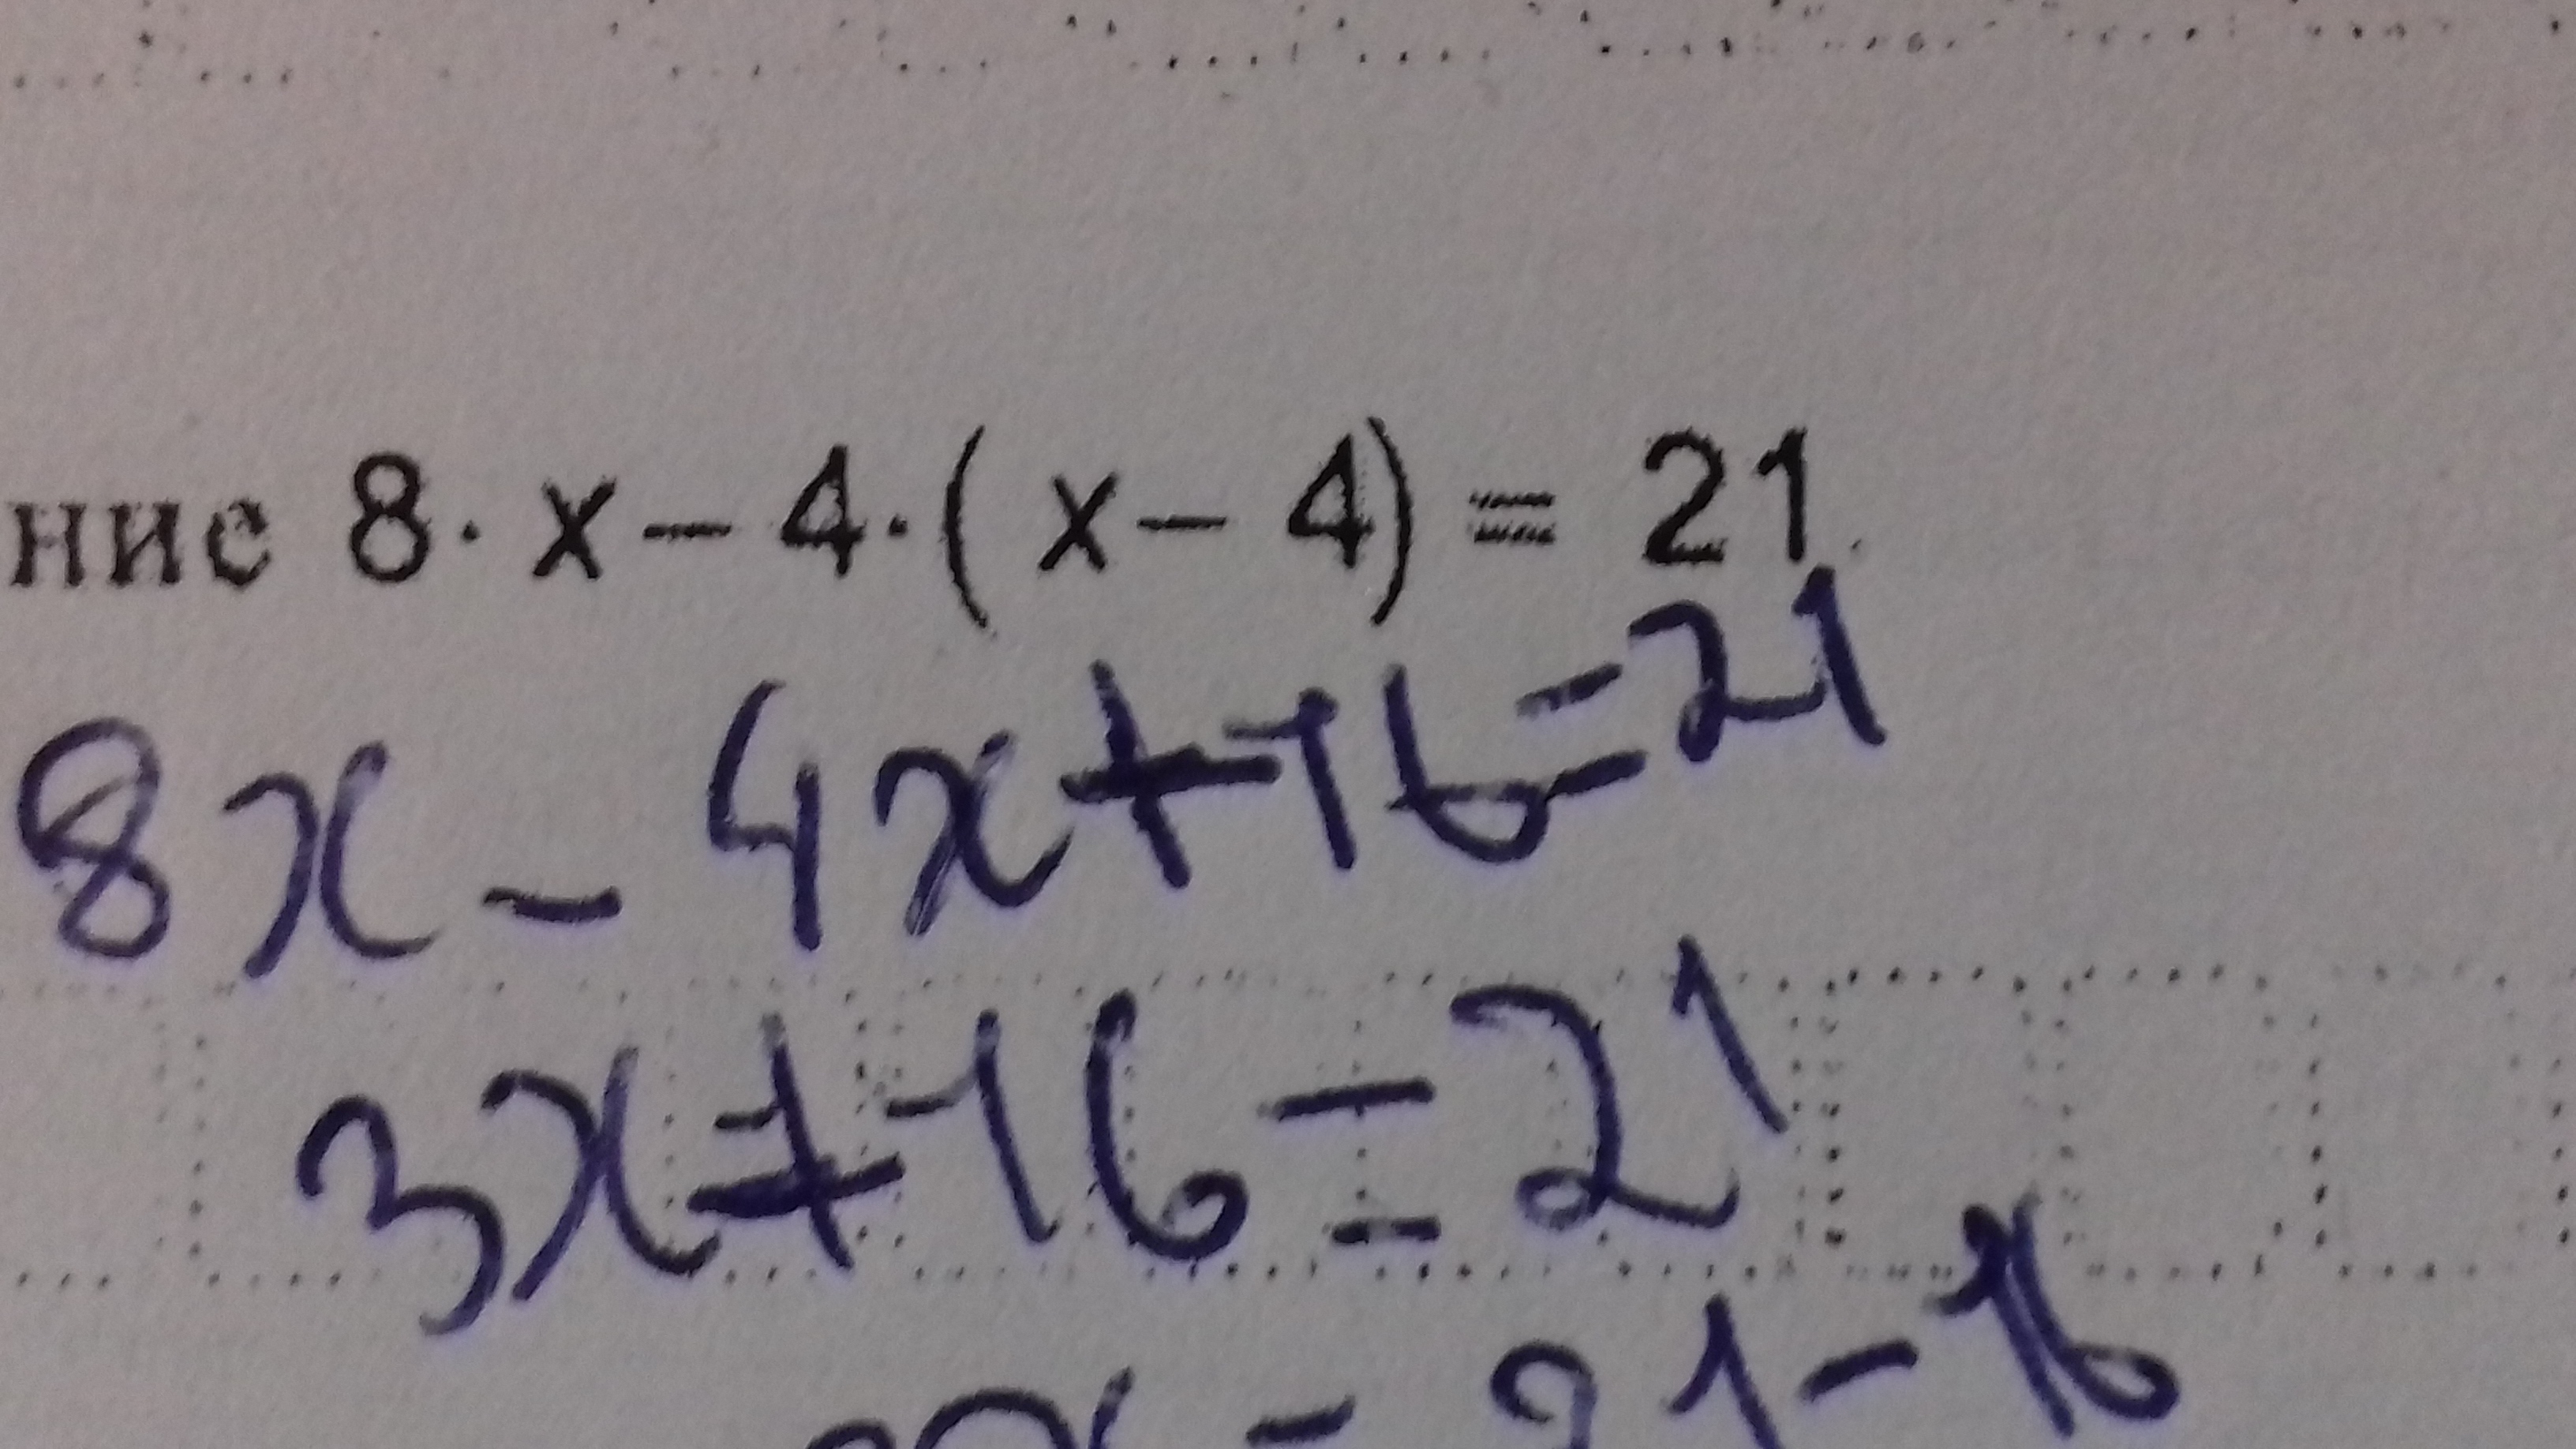 ние 8 · x – 4 · ( x – 4) = 21.
8x - 4x + 16 = 21
3x + 16 = 21
3x = 21 - 16